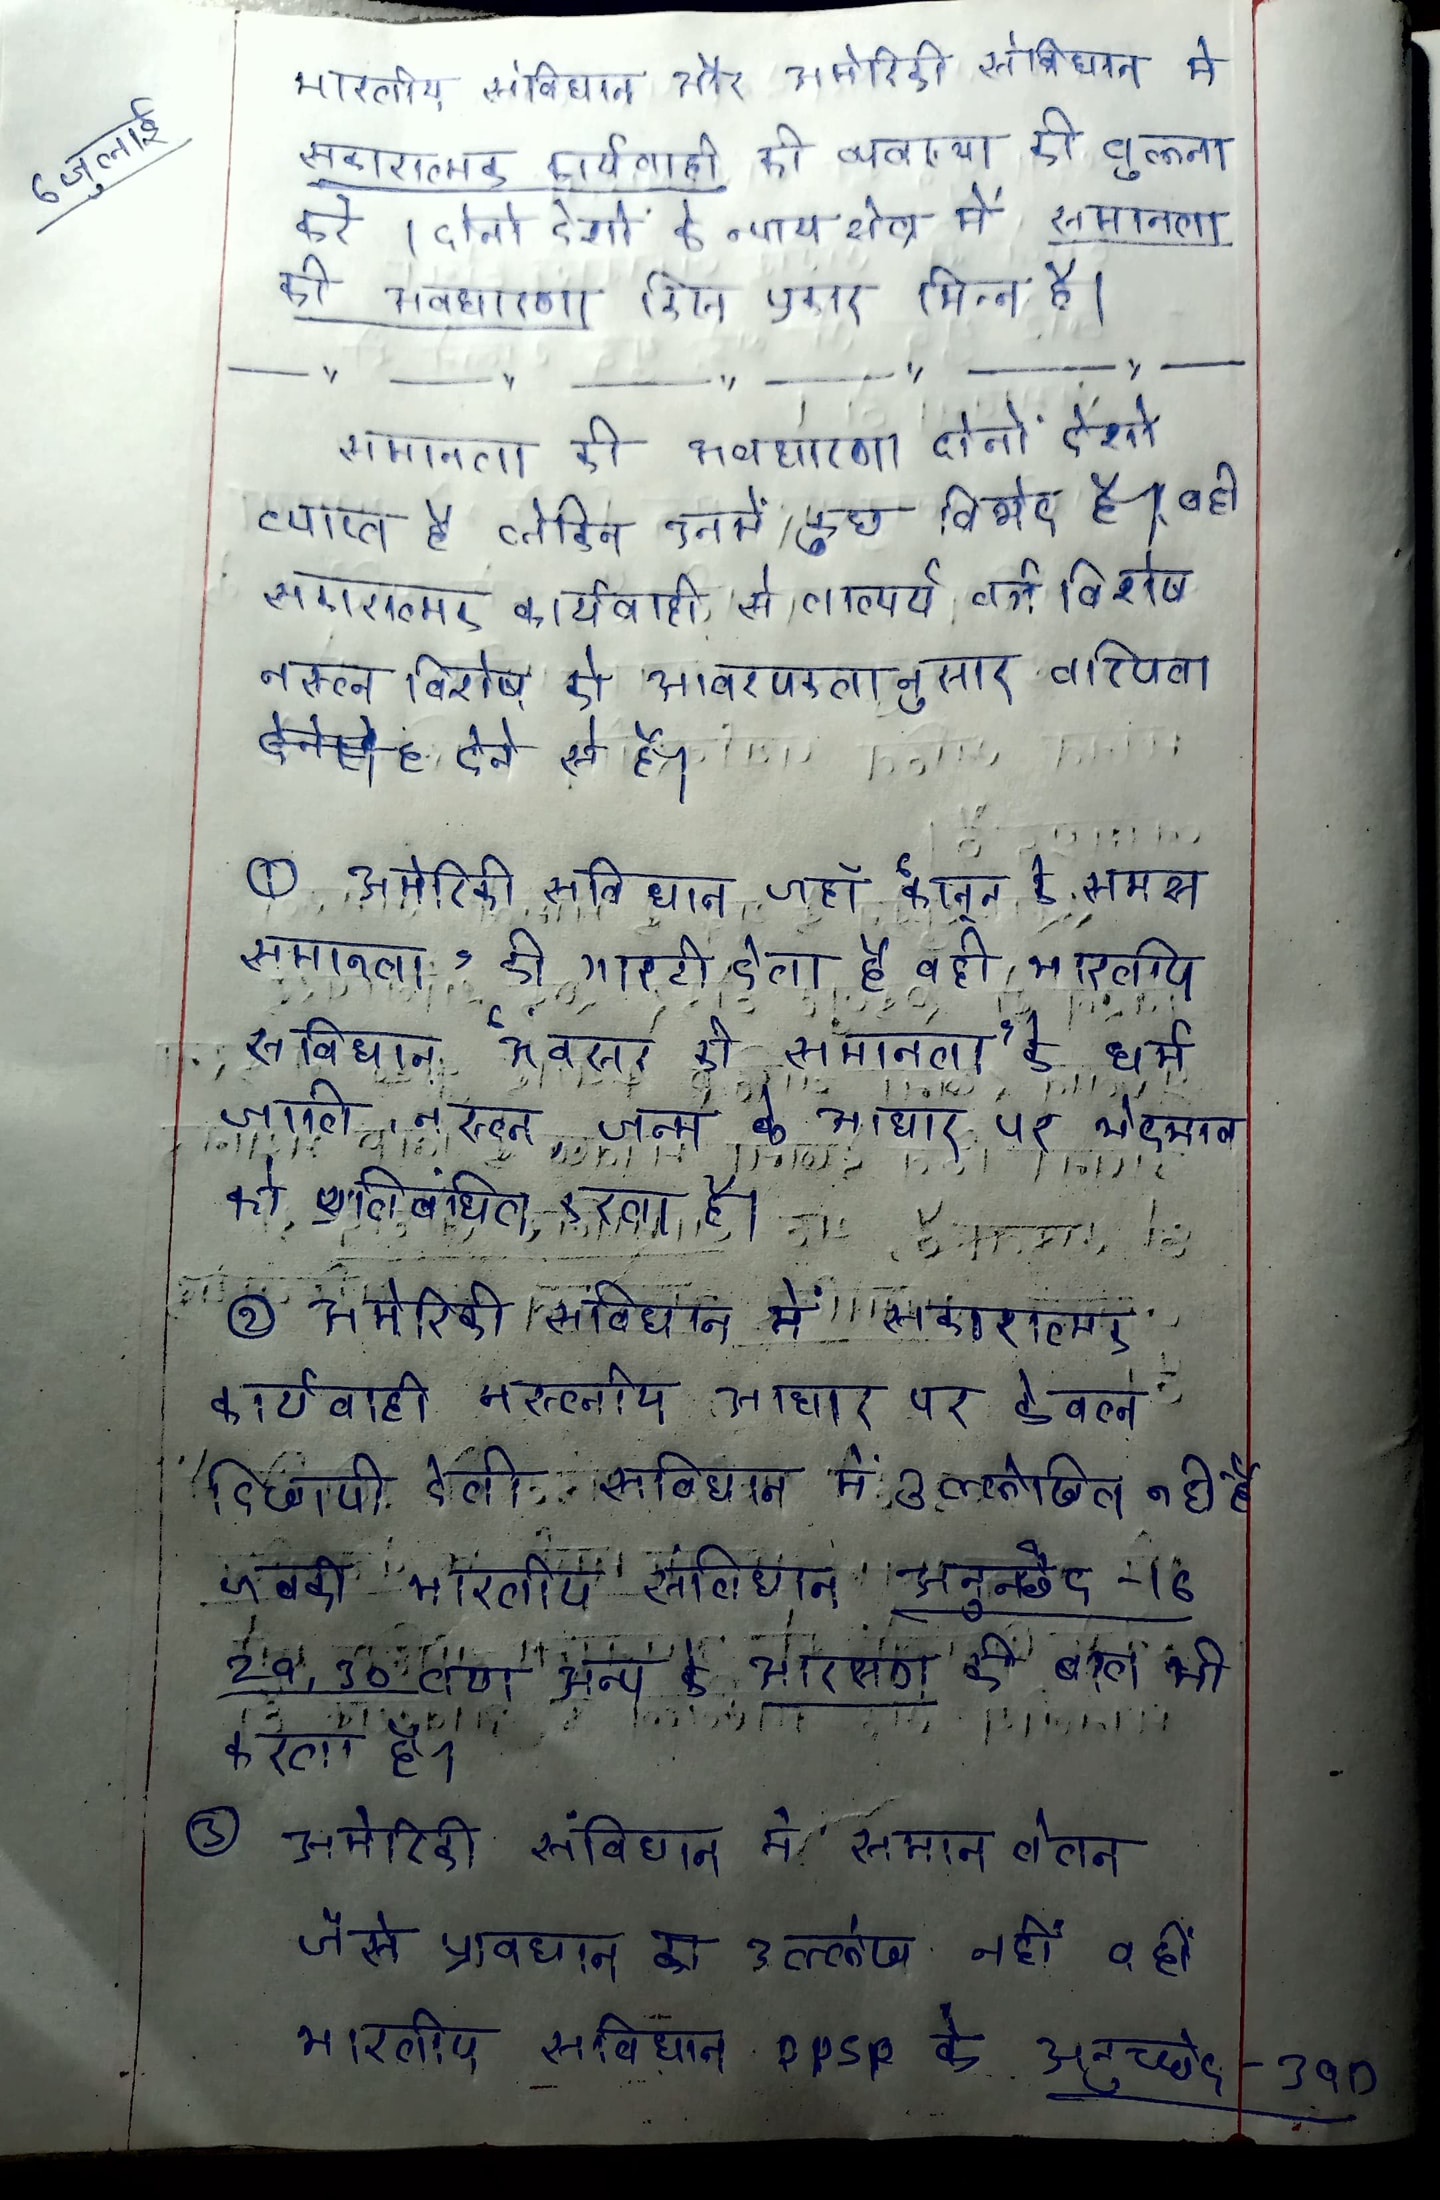 6 जुलाई
भारतीय संविधान और अमेरिकी संविधान मे
सकारात्मक कार्यवाही की व्यवस्था की तुलना
करे । दोनो देशों के न्याय क्षेत्र में समानता
की अवधारणा किस प्रकार भिन्न है।
समानता की अवधारणा दोनों देशो
व्याप्त है लेकिन उनमें कुछ विभेद है। वही
सकारात्मक कार्यवाही से तात्पर्य वर्ग विशेष
नस्ल विशेष को आवश्यकतानुसार
देने से है।
① अमेरिकी संविधान जहाँ 'कानून के समक्ष
समानता' की गारंटी देता है वही भारतीय
संविधान 'अवसर की समानता' के धर्म
जाति, नस्ल, जन्म के आधार पर भेदभाव
को प्रतिबंधित करता है।
② अमेरिकी संविधान में सकारात्मक
कार्यवाही नस्लीय आधार पर केवल
देती संविधान में उल्लेखित नही है
जबकी भारतीय संविधान अनुच्छेद -16
29, 30 तथा अन्य के आरक्षण की बात भी
करता है।
③ अमेरिकी संविधान मे समान वेतन
जैसे प्रावधान का उल्लेख नहीं वहीं
भारतीय संविधान DPSP के अनुच्छेद - 39D